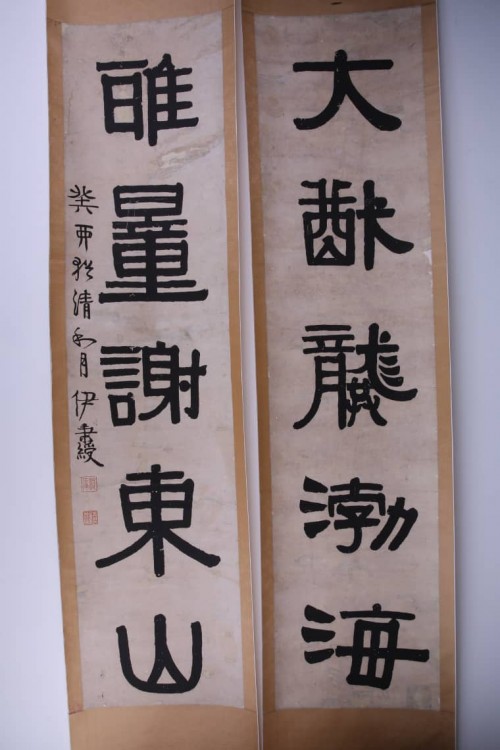 大猷龔渤海
雅量謝東山
癸酉猶清和月伊秉綬